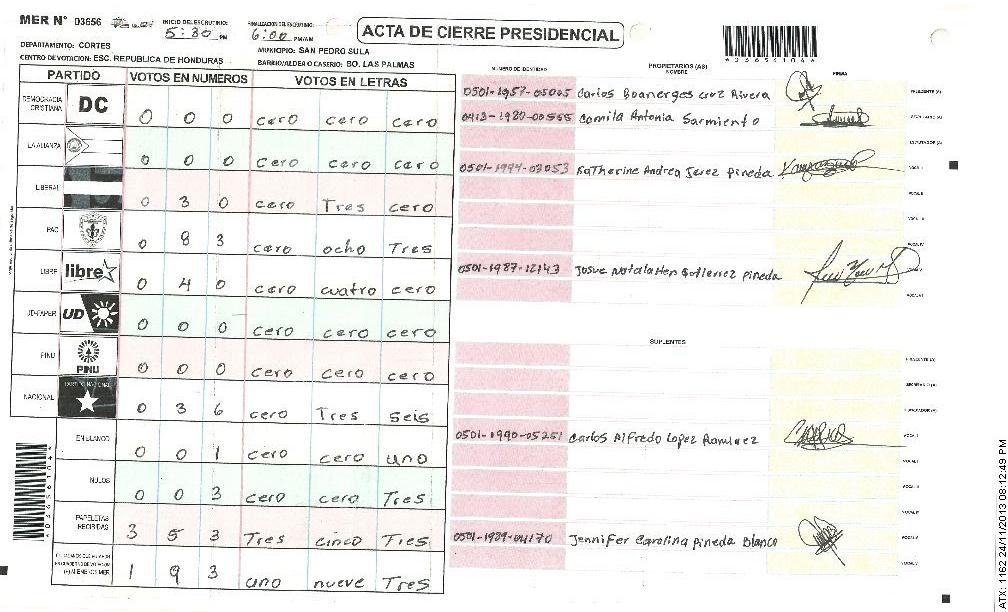 MER N° 03656
INICIO DEL ESCRUTINIO:
5:30 PM
FINALIZACION DEL ESCRUTINIO:
6:00 PM/AM
ACTA DE CIERRE PRESIDENCIAL
*036561064*
DEPARTAMENTO: CORTES
MUNICIPIO: SAN PEDRO SULA
CENTRO DE VOTACION: ESC. REPUBLICA DE HONDURAS
BARRIO/ALDEA O CASERIO: BO. LAS PALMAS
PARTIDO VOTOS EN NUMEROS VOTOS EN LETRAS
DEMOCRACIA CRISTIANA DC 0 0 0 cero cero cero
LA ALIANZA 0 0 0 cero cero cero
LIBERAL 0 3 0 cero Tres cero
PAC 0 8 3 cero ocho Tres
LIBRE libre 0 4 0 cero cuatro cero
UD-FAPER UD 0 0 0 cero cero cero
PINU PINU 0 0 0 cero cero cero
NACIONAL PARTIDO NACIONAL 0 3 6 cero Tres seis
EN BLANCO 0 0 1 cero cero uno
NULOS 0 0 3 cero cero Tres
PAPELETAS RECIBIDAS 3 5 3 Tres cinco Tres
1 9 3 uno nueve Tres
NUMERO DE IDENTIDAD
PROPIETARIOS (AS)
NOMBRE
FIRMA
Carlos Boanerges Cruz Rivera PRESIDENTE (A)
Camila Antonia Sarmiento SECRETARIO (A)
ESCRUTADOR (A)
Katherine Andrea Jerez Pineda VOCAL I
VOCAL II
VOCAL III
VOCAL IV
0501-1987-12143 Josue Gutierrez Pineda VOCAL V
VOCAL VI
SUPLENTES
PRESIDENTE (A)
SECRETARIO (A)
ESCRUTADOR (A)
0501-1990-05251 Carlos Alfredo Lopez Ramirez VOCAL I
VOCAL II
VOCAL III
VOCAL IV
Jennifer Carolina Pineda Blanco VOCAL V
VOCAL VI
ATX: 1162 24/11/2013 08:12:49 PM